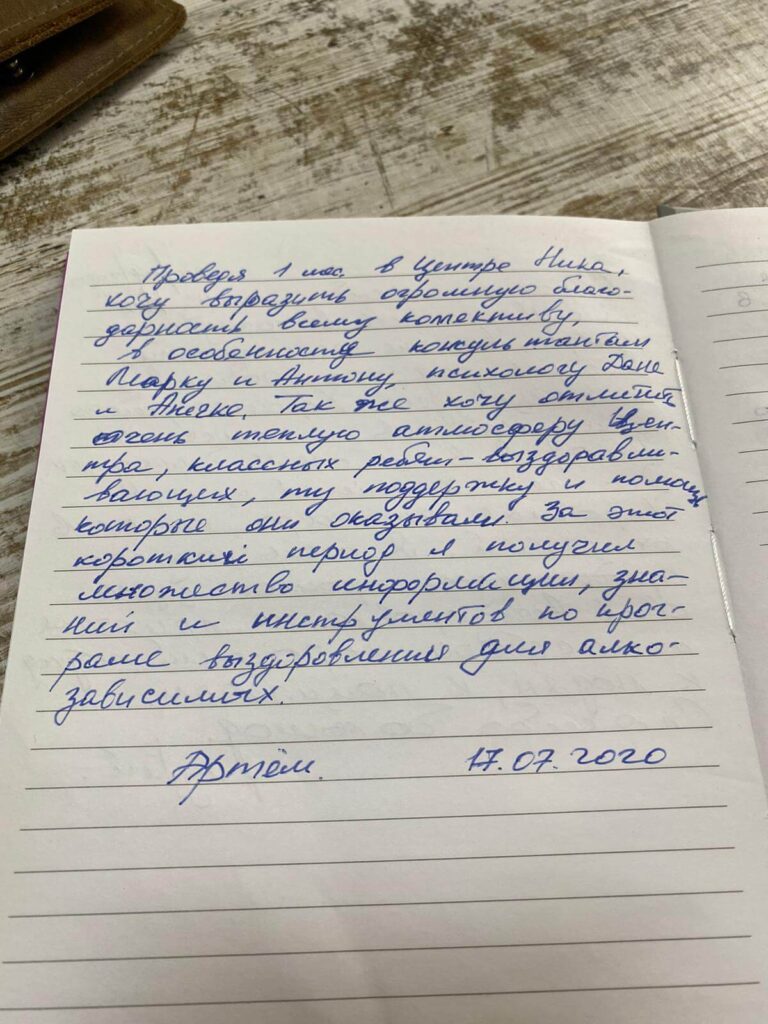 Проведя 1 мес. в Центре Ника,
хочу выразить огромную благо-
дарность всему комективу,
в особенности консультантам
Марку и Антону, психологу Дане
и Анечке. Так же хочу отметить
очень теплую атмосферу Цен-
тра, классных ребят-выздоравли-
вающих, ту поддержку и помощь
которые они оказывали. За этот
короткий период я получил
множество информации, зна-
ний и инструментов по прог-
раме выздоровления для алко-
зависимых.
Артём. 17.07.2020